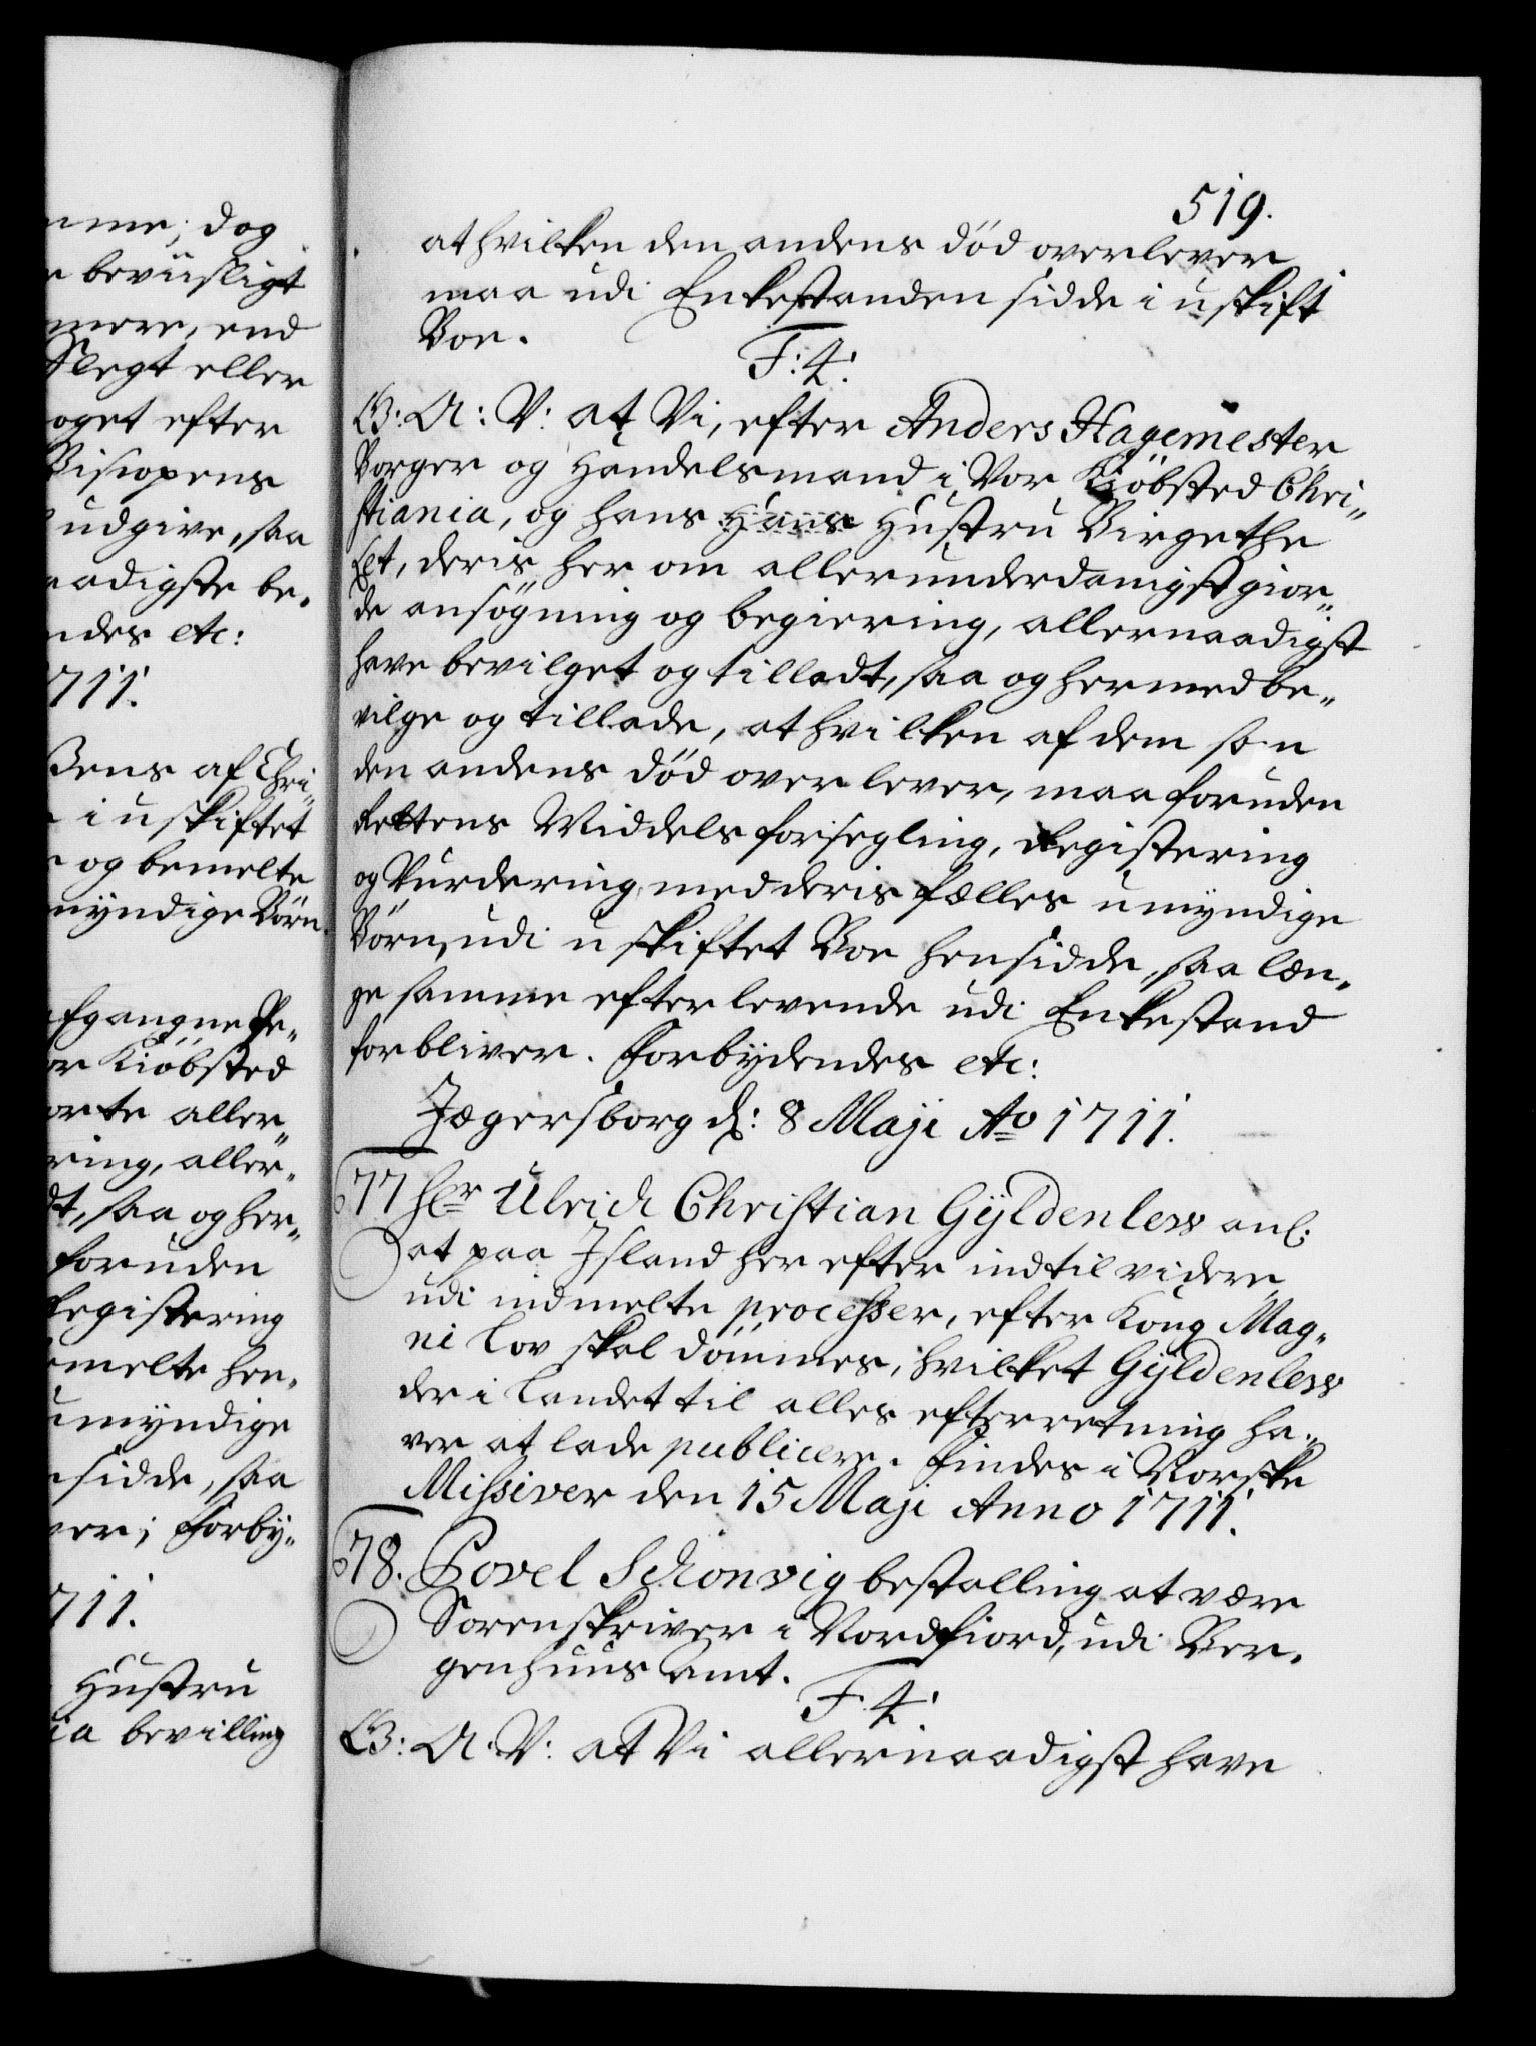 mme; dog
beviisligt
mere, end
Slegt eller
oget efter
Biscopens
udgive, saa
aadigste be„
ndes etc:
711.
Bens af Chri„
i uskiftet
og bemelte
myndige Börn.
afgangne Pe„
or Kiöbsted
orte aller„
ring, aller„
dt, saa og her„
foruden
Registering
melte hen„
umyndige
sidde, saa
ver; Forby„
711.
Hustru
ia bevilling
519.
at hvilken den andens död overlever
maa udi Enkestanden sidde i uskift
Boe.
F: 4:
G: A: V: at Vi, efter Anders Hagemester
Borger og Handelsmand i Vor Kiöbsted Chri„
stiania, og hans Hans Hustru Birgethe
deris her om allerunderdanigst gior„
de ansögning og begiering, allernaadigst
have bevilget og tilladt, saa og hermed be„
vilge og tillade, at hvilken af dem som
den andens död overlever, maa foruden
Rettens Middels forsegling, Registering
og Vurdering med deris fælles umyndige
Börn, udi uskiftet Boe hensidde, saa læn„
ge samme efterlevende udi Enkestand
forbliver. Forbydendes etc:
Jægersborg d: 8 Maji Ao 1711.
77 Hr Ulrich Christian Gyldenlew anl:
at paa Island her efter indtil videre
udi indmelte processer, efter Kong Mag„
ni Lov skal dömmes, hvilket Gyldenlew
der i Landet til alles efterretning ha„
ver at lade publicere. findes i Norske
Missiver den 15 Maji Anno 1711.
78. Povel Schonvig bestalling at være
Sorenskriver i Nordfiord, udi Ber„
genhuus Amt.
F. 4:
G: A: V: at Vi allernaadigst have